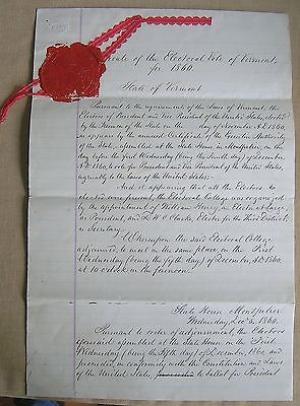 ate of the Electoral Vote of Vermont,
for 1860.
State of Vermont
Pursuant to the requirement of the Laws of Vermont, the
Electors of President and Vice President of the United States, elected
by the Freemen of the State on the day of November A.D. 1860,
as appears by the annexed Certificate of the Executive Authority
of the State, assembled at the State House in Montpelier, on the
day before the first Wednesday (being the fourth) day of December
A.D. 1860, to vote for President and Vice President of the United States,
agreeably to the laws of the United States.
And it appearing that all the Electors so
elected were present, the Electoral College was organized
by the appointment of William Elector at Large,
as President, and Clarke, Elector for the Third District,
as Secretary.
Whereupon the said Electoral College
adjourned, to meet in the same place, on the first
Wednesday (being the fifth day) of December, A.D. 1860,
at 10 o'clock in the forenoon.
State House Montpelier
Wednesday, Dec. 5, 1860.
Pursuant to order of adjournment, the Electors
aforesaid assembled at the State House on the first
Wednesday (being the fifth day) of December, 1860, and
proceeded, in conformity with the Constitution and Laws
of the United States, to ballot for President